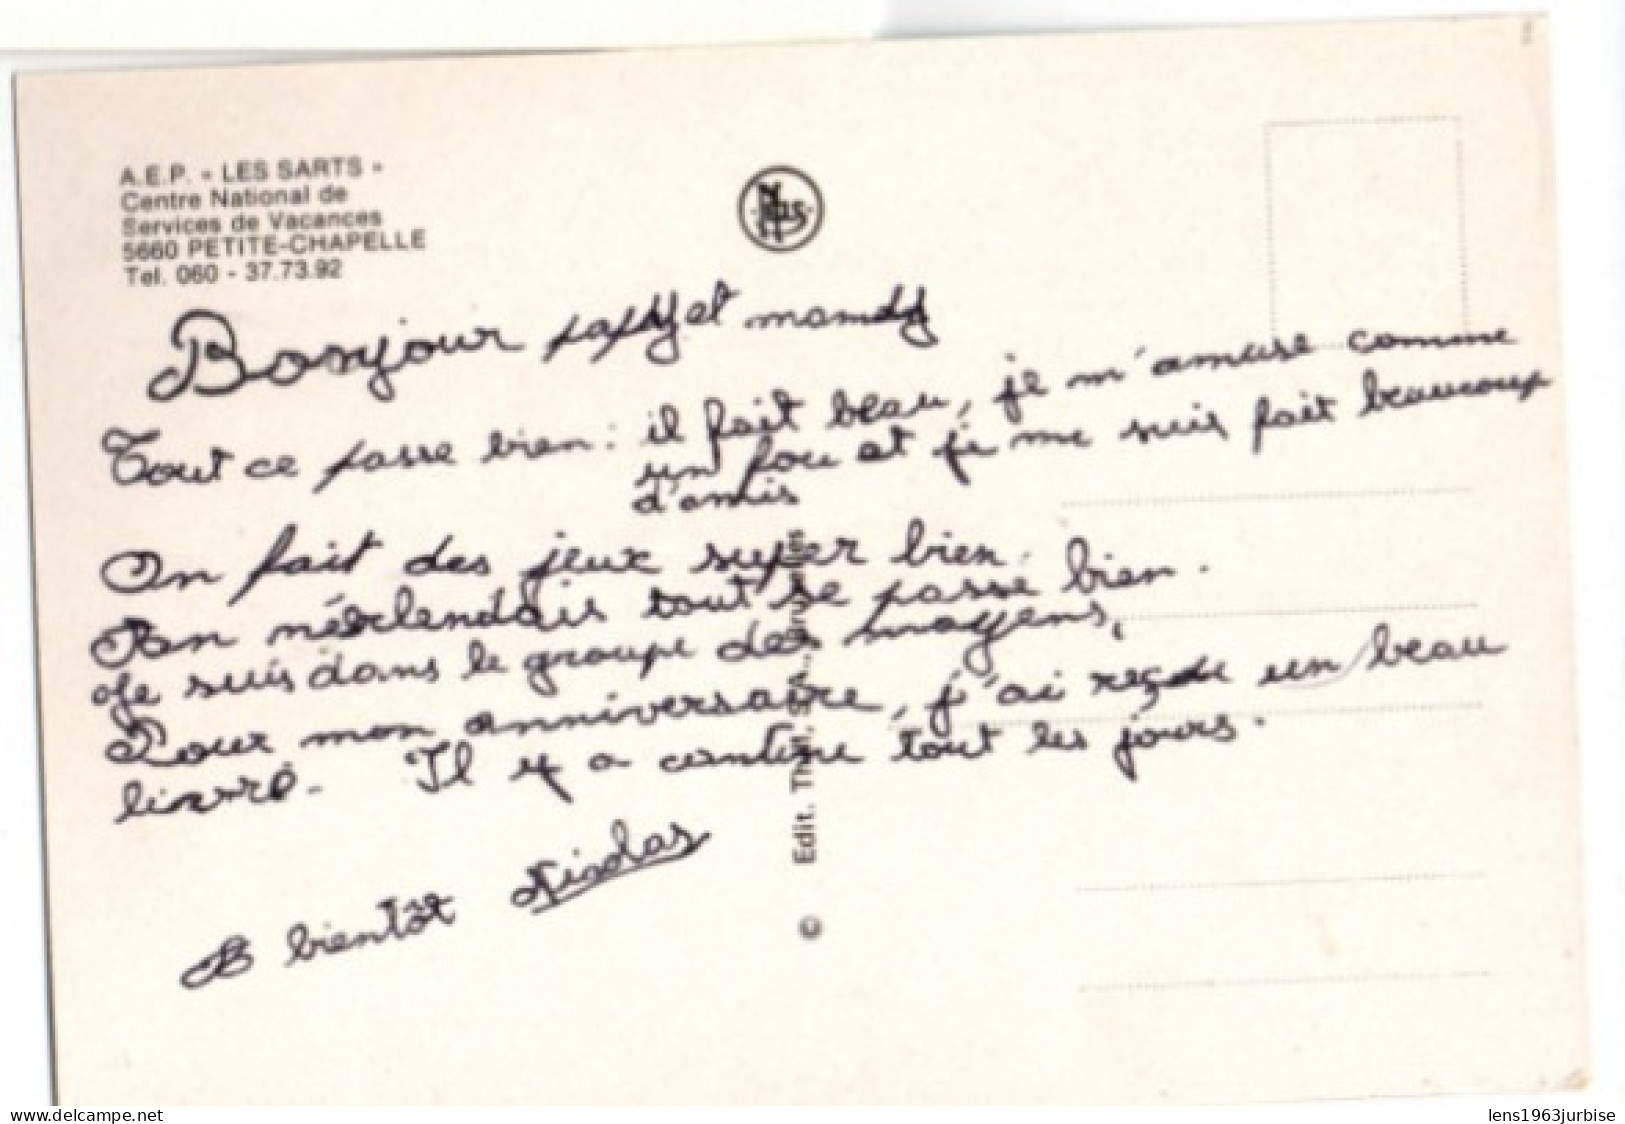 A.E.P. « LES SARTS »
Centre National de
Services de Vacances
5660 PETITE-CHAPELLE
Tel. 060 - 37.73.92
Nels
Bonjour papy et mamy
Tout ce passe bien : il fait beau, je m'amuse comme
un fou et je me suis fait beaucoup
d'amis
On fait des jeux super bien.
En néerlendais tout se passe bien.
Je suis dans le groupe des moyens,
Pour mon anniversaire, j'ai reçu un beau
livre. Il y a cantine tout les jours.
A bientôt Nicolas
© Edit. Thill, S.A.,
www.delcampe.net
lens1963jurbise